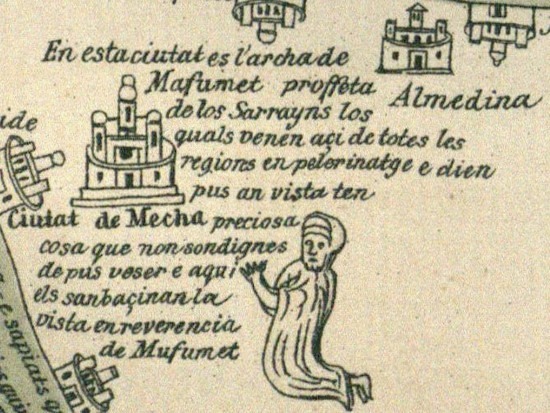 En esta ciutat es l'archa de
Mafumet proffeta
de los Sarrayns los
quals venen açi de totes les
regions en pelerinatge e dien
pus an vista ten
Ciutat de Mecha preciosa
cosa que non son dignes
de pus veser e aqui
els sanbaçinan la
vista en reverencia
de Mufumet
Almedina
ide
e sapiats q